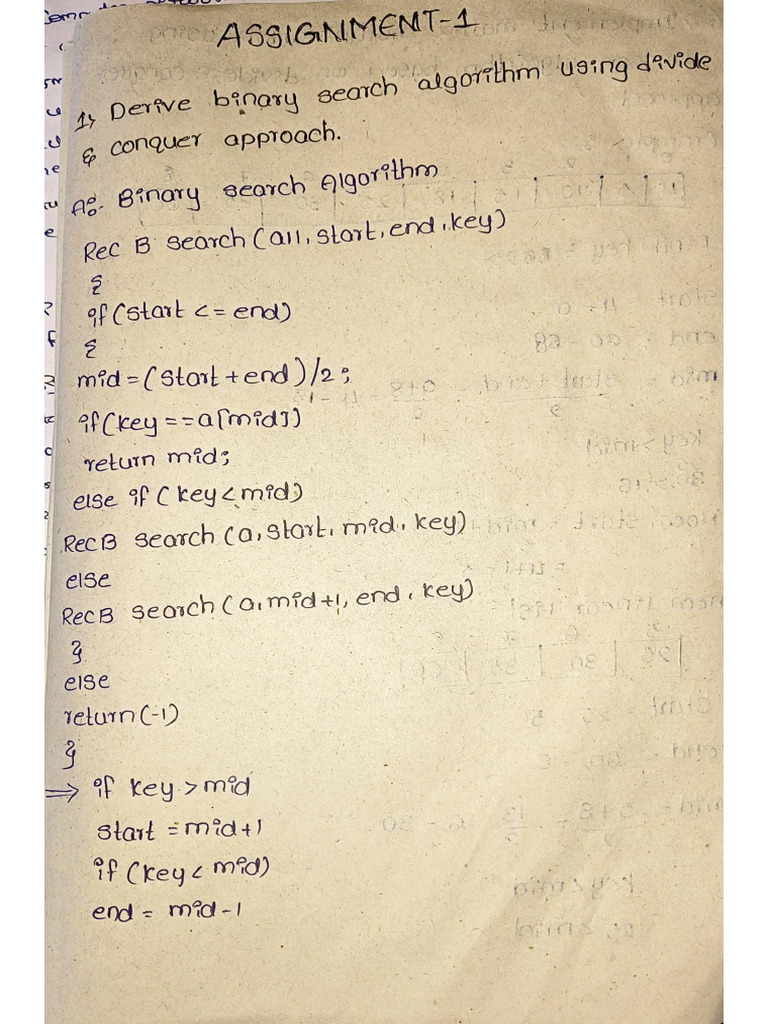 ASSIGNMENT-1
1) Derive binary search algorithm using divide
& conquer approach.
A:- Binary search Algorithm
Rec B search (a[], start, end, key)
{
if (start <= end)
{
mid = (start + end) / 2;
if (key == a[mid])
return mid;
else if (key < mid)
RecB search (a, start, mid, key)
else
RecB search (a, mid+1, end, key)
}
else
return (-1)
}
⇒ if key > mid
start = mid+1
if (key < mid)
end = mid-1